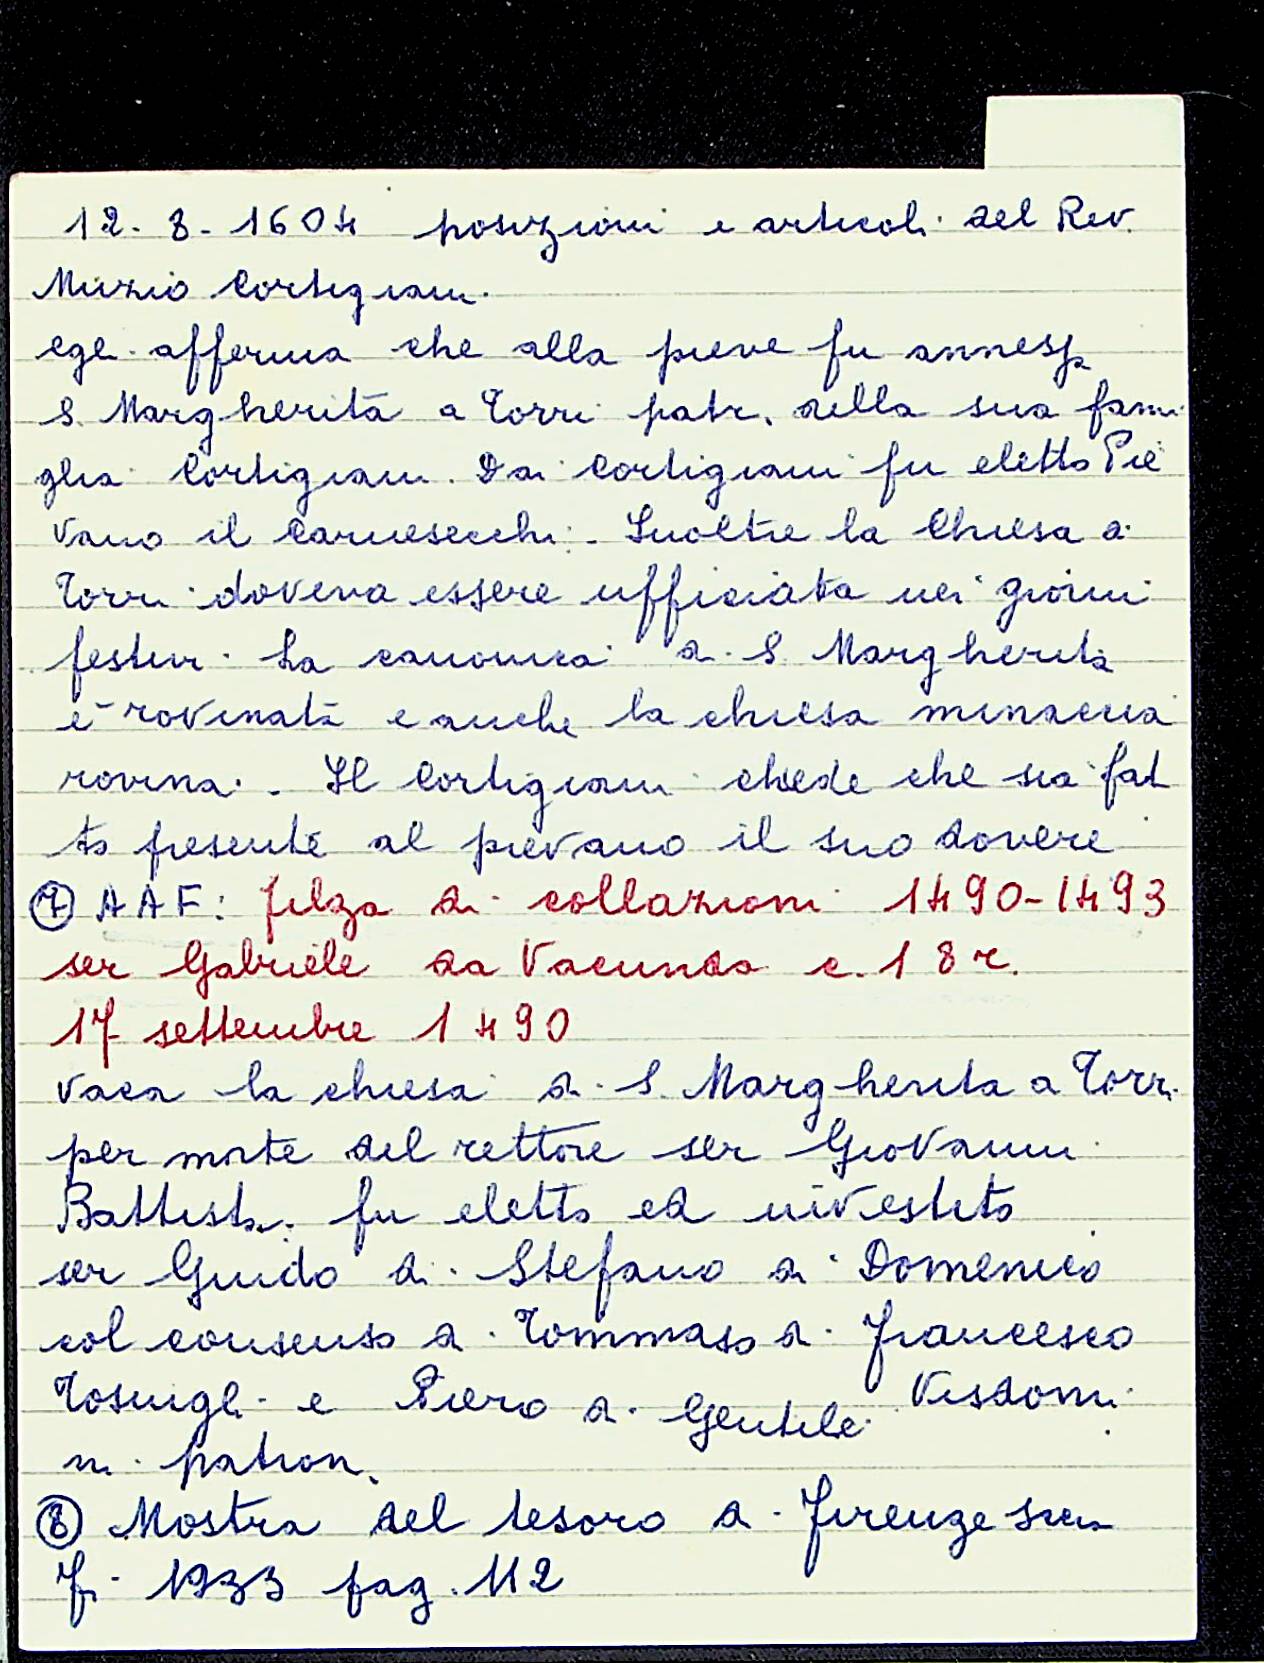 12-8-1604 posizioni e articoli del Rev.
Muzio Cortigiani.
egli afferma che alla pieve fu annessa
S. Margherita a Torri patr. della sua fami
glia Cortigiani. Dai Cortigiani fu eletto Pie
vano il Carnesecchi. Inoltre la Chiesa a
Torri doveva essere ufficiata nei giorni
festivi. La canonica di S. Margherita
è rovinata e anche la chiesa minaccia
rovina. Il Cortigiani chiede che sia fat
to presente al pievano il suo dovere
(7) AAF: filza di collazioni 1490-1493
ser Gabriele da Vacunda c. 18 r.
17 settembre 1490
vaca la chiesa di S. Margherita a Torri
per morte del rettore ser Giovanni
Battista. fu eletto ed investito
ser Guido di Stefano di Domenico
col consenso di Tommaso di Francesco
Tosinghi e Piero di Gentile Visdomi
ni patron.
(8) Mostra del tesoro di Firenze sacra
Fi. 1933 pag. 112